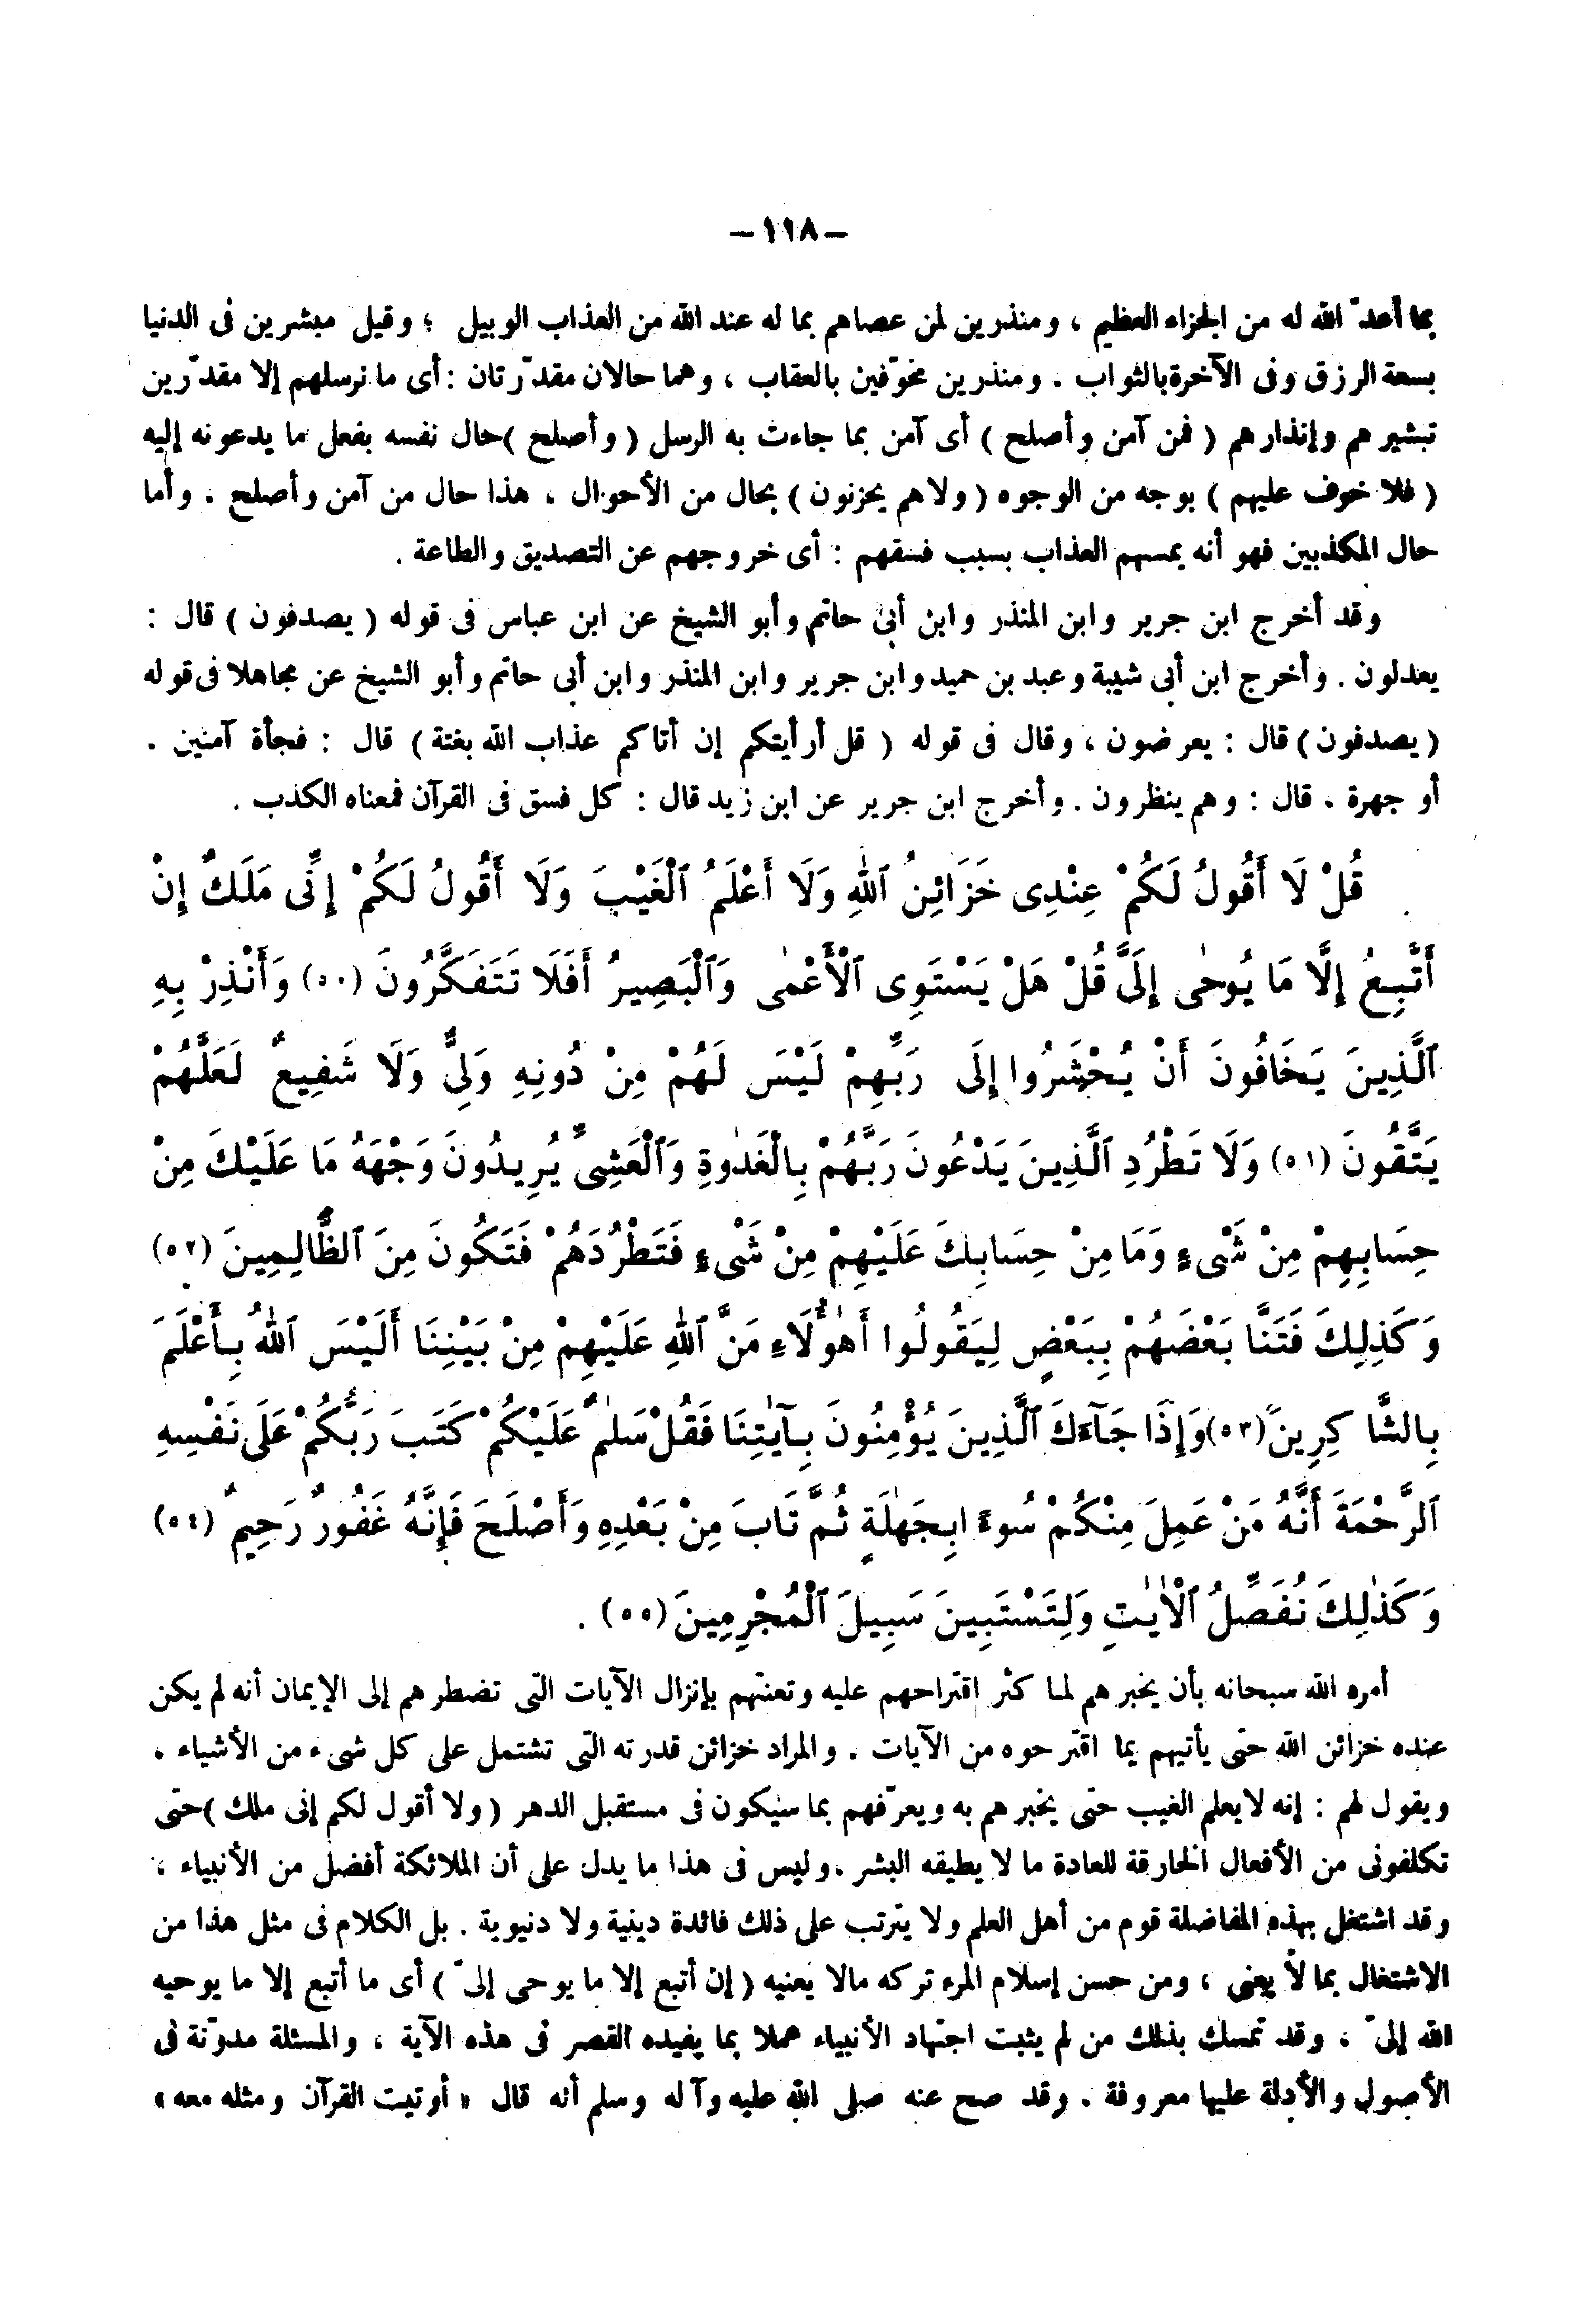 – ١١٨ –
بما أعدّ الله له من الجزاء العظيم ، ومنذرين لمن عصاهم بما له عند الله من العذاب الوبيل ؛ وقيل مبشرين فى الدنيا
بسعة الرزق وفى الآخرة بالثواب . ومنذرين مخوّفين بالعقاب ، وهما حالان مقدّرتان : أى ما نرسلهم إلا مقدّرين
تبشيرهم وإنذارهم ( فمن آمن وأصلح ) أى آمن بما جاءت به الرسل ( وأصلح ) حال نفسه بفعل ما يدعونه إليه
( فلا خوف عليهم ) بوجه من الوجوه ( ولا هم يحزنون ) بحال من الأحوال ، هذا حال من آمن وأصلح ، وأما
حال المكذبين فهو أنه يمسهم العذاب بسبب فسقهم : أى خروجهم عن التصديق والطاعة .
وقد أخرج ابن جرير وابن المنذر وابن أبى حاتم وأبو الشيخ عن ابن عباس فى قوله ( يصدفون ) قال :
يعدلون . وأخرج ابن أبى شيبة وعبد بن حميد وابن جرير وابن المنذر وابن أبى حاتم وأبو الشيخ عن مجاهلا فى قوله
( يصدفون ) قال : يعرضون ، وقال فى قوله ( قل أرأيتكم إن أتاكم عذاب الله بغتة ) قال : فجأة آمنين .
أو جهرة ، قال : وهم ينظرون . وأخرج ابن جرير عن ابن زيد قال : كل فسق فى القرآن فمعناه الكذب .
قُلْ لَا أَقُولُ لَكُمْ عِنْدِى خَزَائِنُ ٱللهِ وَلَا أَعْلَمُ ٱلْغَيْبَ وَلَا أَقُولُ لَكُمْ إِنِّى مَلَكٌ إِنْ
أَتَّبِعُ إِلَّا مَا يُوحٰى إِلَىَّ قُلْ هَلْ يَسْتَوِى ٱلْأَعْمٰى وَٱلْبَصِيرُ أَفَلَا تَتَفَكَّرُونَ (٥٠) وَأَنْذِرْ بِهِ
ٱلَّذِينَ يَخَافُونَ أَنْ يُحْشَرُوا إِلَى رَبِّهِمْ لَيْسَ لَهُمْ مِنْ دُونِهِ وَلِىٌّ وَلَا شَفِيعٌ لَعَلَّهُمْ
يَتَّقُونَ (٥١) وَلَا تَطْرُدِ ٱلَّذِينَ يَدْعُونَ رَبَّهُمْ بِالْغَدٰوةِ وَٱلْعَشِىِّ يُرِيدُونَ وَجْهَهُ مَا عَلَيْكَ مِنْ
حِسَابِهِمْ مِنْ شَىْءٍ وَمَا مِنْ حِسَابِكَ عَلَيْهِمْ مِنْ شَىْءٍ فَتَطْرُدَهُمْ فَتَكُونَ مِنَ ٱلظَّالِمِينَ (٥٢)
وَكَذٰلِكَ فَتَنَّا بَعْضَهُمْ بِبَعْضٍ لِيَقُولُوا أَهٰؤُلَاءِ مَنَّ ٱللهُ عَلَيْهِمْ مِنْ بَيْنِنَا أَلَيْسَ ٱللهُ بِأَعْلَمَ
بِالشَّاكِرِينَ (٥٣) وَإِذَا جَآءَكَ ٱلَّذِينَ يُؤْمِنُونَ بِآيٰتِنَا فَقُلْ سَلٰمٌ عَلَيْكُمْ كَتَبَ رَبُّكُمْ عَلَى نَفْسِهِ
ٱلرَّحْمَةَ أَنَّهُ مَنْ عَمِلَ مِنْكُمْ سُوءًا بِجَهٰلَةٍ ثُمَّ تَابَ مِنْ بَعْدِهِ وَأَصْلَحَ فَإِنَّهُ غَفُورٌ رَحِيمٌ (٥٤)
وَكَذٰلِكَ نُفَصِّلُ ٱلْاٰيٰتِ وَلِتَسْتَبِينَ سَبِيلَ ٱلْمُجْرِمِينَ (٥٥) .
أمره الله سبحانه بأن يخبرهم لما كثر اقتراحهم عليه وتعنتهم بإنزال الآيات التى تضطرهم إلى الإيمان أنه لم يكن
عنده خزائن الله حتى يأتيهم بما اقترحوه من الآيات . والمراد خزائن قدرته التى تشتمل على كل شىء من الأشياء ،
ويقول لهم : إنه لايعلم الغيب حتى يخبرهم به ويعرّفهم بما سيكون فى مستقبل الدهر ( ولا أقول لكم إنى ملك ) حتى
تكلفونى من الأفعال الخارقة للعادة ما لا يطيقه البشر . وليس فى هذا ما يدل على أن الملائكة أفضل من الأنبياء ،
وقد اشتغل بهذه المفاضلة قوم من أهل العلم ولا يترتب على ذلك فائدة دينية ولا دنيوية . بل الكلام فى مثل هذا من
الاشتغال بما لا يعنى ، ومن حسن إسلام المرء تركه مالا يعنيه ( إن أتبع إلا ما يوحى إلىّ ) أى ما أتبع إلا ما يوحيه
الله إلىّ ، وقد تمسك بذلك من لم يثبت اجتهاد الأنبياء عملا بما يفيده القصر فى هذه الآية ، والمسئلة مدوّنة فى
الأصول والأدلة عليها معروفة . وقد صح عنه صلى الله عليه وآله وسلم أنه قال « أوتيت القرآن ومثله معه »